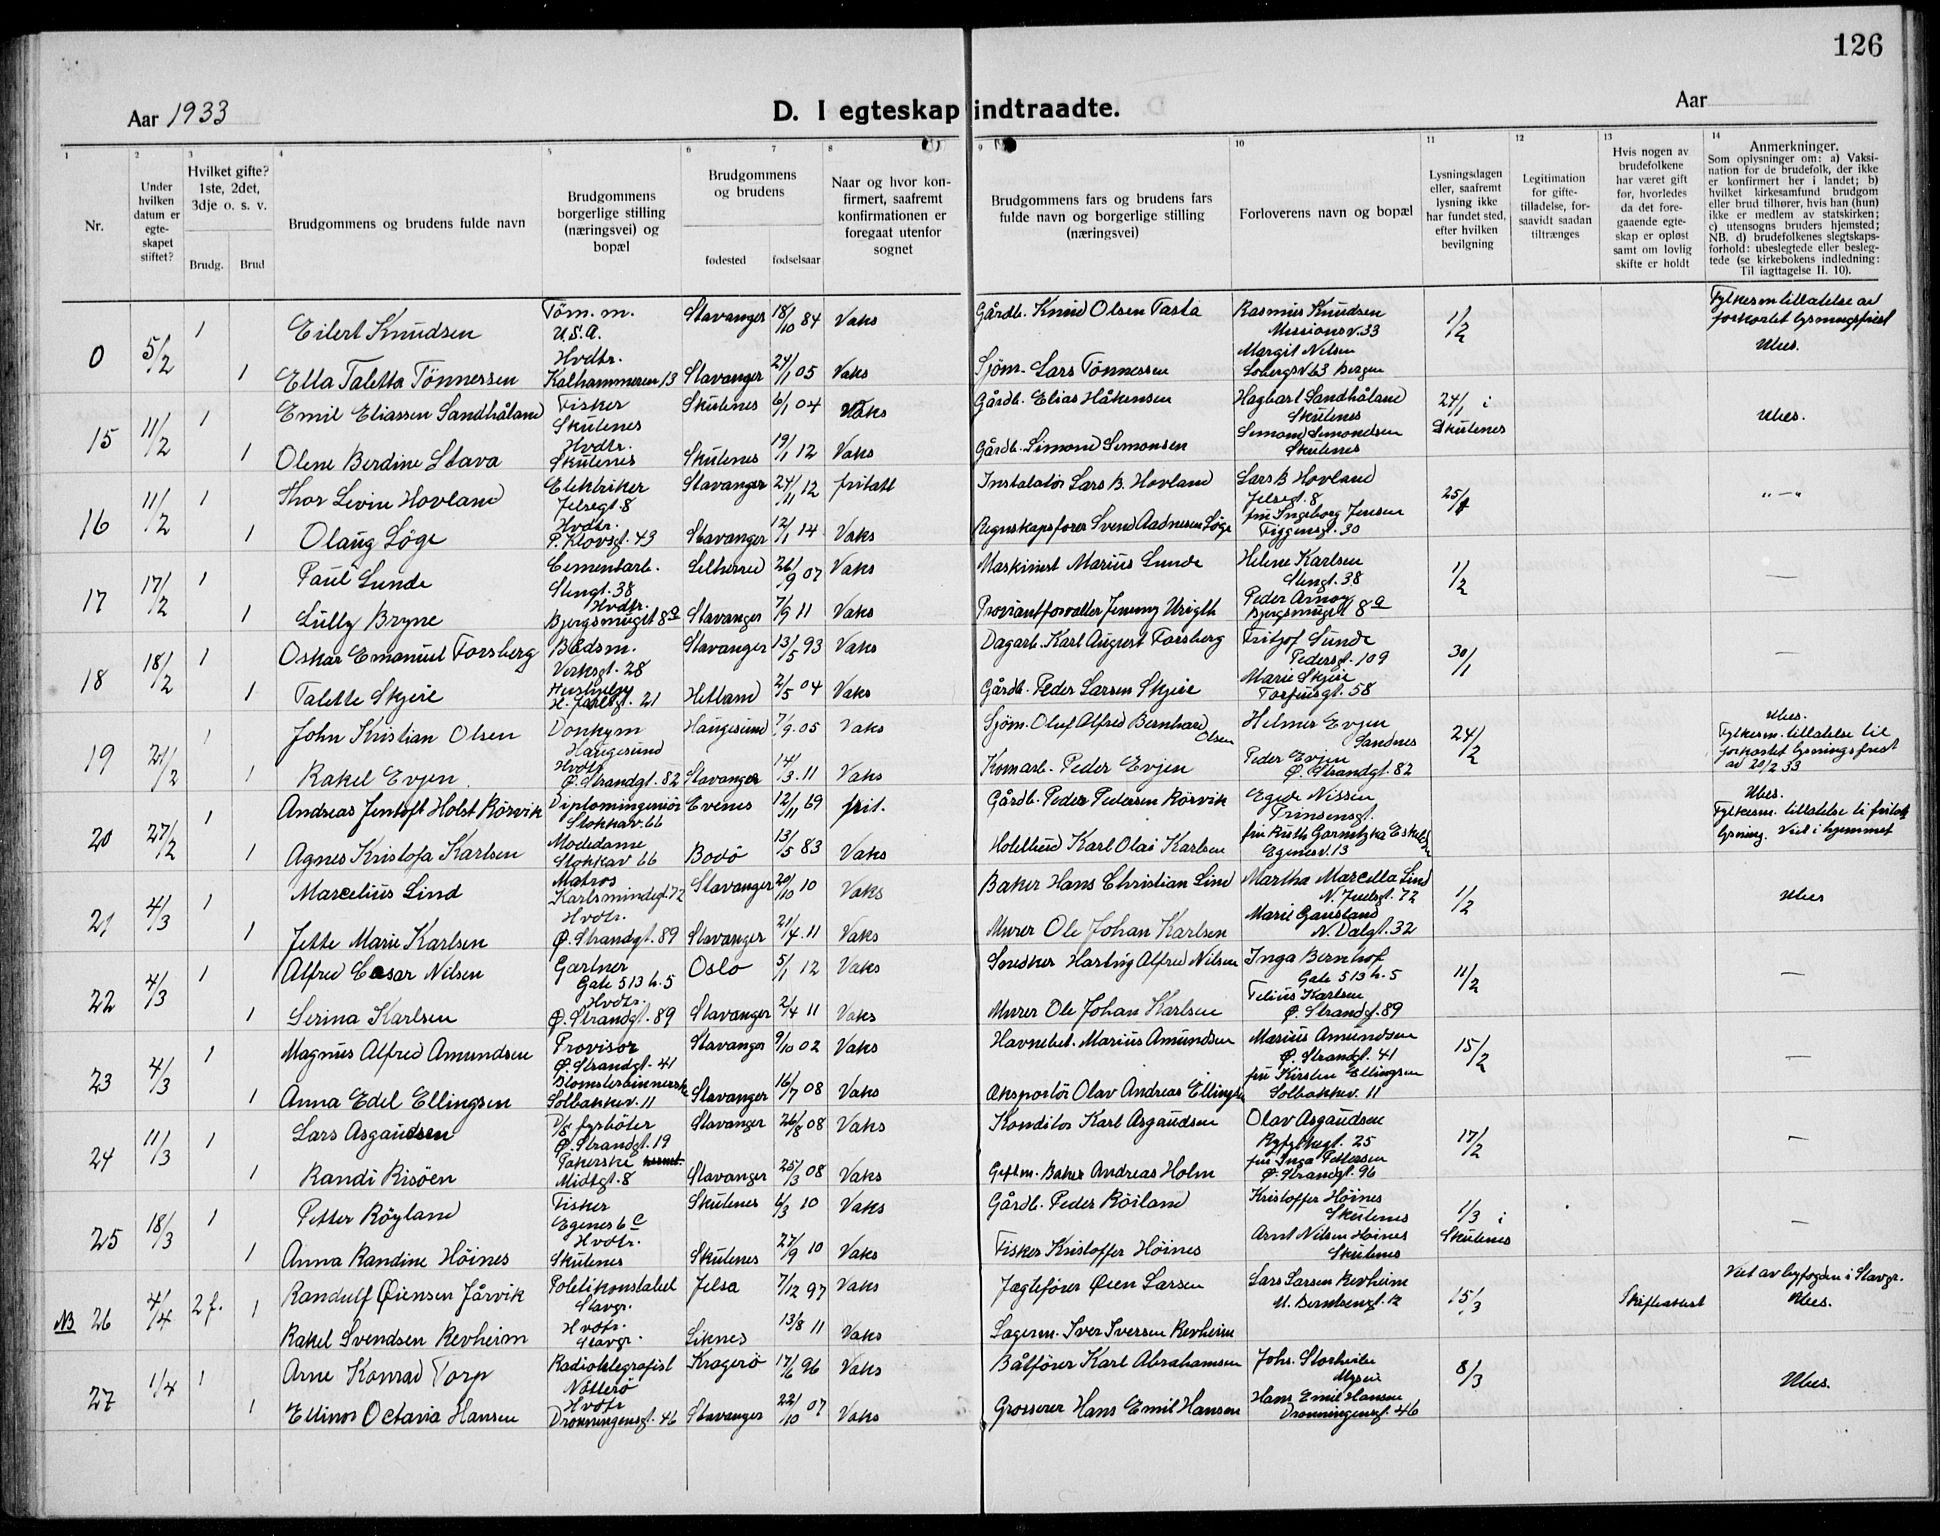 126
Aar 1933
D. I egteskap indtraadte.
Aar
1 2 3 4 5 6 7 8 9 10 11 12 13 14
Nr.
Under hvilken datum er egte-skapet stiftet?
Hvilket gifte? 1ste, 2det, 3dje o. s. v.
Brudg. Brud
Brudgommens og brudens fulde navn
Brudgommens borgerlige stilling (næringsvei) og bopæl
Brudgommens og brudens
fødested fødselsaar
Naar og hvor kon-firmert, saafremt konfirmationen er foregaat utenfor sognet
Brudgommens fars og brudens fars fulde navn og borgerlige stilling (næringsvei)
Forloverens navn og bopæl
Lysningsdagen eller, saafremt lysning ikke har fundet sted, efter hvilken bevilgning
Legitimation for gifte-tilladelse, for-saavidt saadan tiltrænges
Hvis nogen av brudefolkene har været gift for, hvorledes da det fore-gaaende egte-skap er opløst samt om lovlig skifte er holdt
Anmerkninger.
Som oplysninger om: a) Vaksi-nation for de brudefolk, der ikke er konfirmert her i landet; b) hvilket kirkesamfund brudgom eller brud tilhører, hvis han (hun) ikke er medlem av statskirken; c) utensogns bruders hjemsted; NB. d) brudefolkenes slegtskaps-forhold: ubeslegtede eller besleg-tede (se kirkebokens indledning: Til iagttagelse II. 10).
0 5/2 1 Eilert Knudsen Töm. m. U.S.A. Stavanger 18/10 84 Vaks Gårdb. Knud Olsen Tasta Rasmus Knudsen Missionsv. 33 1/2 Fylkesm tillatelse av forkortet lysningsfrist Ubes.
1 Ella Taletta Tönnessen Hvdtr. Kalhammeren 13 Stavanger 24/1 05 Vaks Sjöm. Lars Tönnessen Margit Nilsen Lobergsv. 63 Bergen
15 11/2 1 Emil Eliassen Sandhåland Fisker Skutenes Skutenes 6/1 04 Vaks Gårdb. Elias Håkensen Hagbart Sandhåland Skutenes 24/1 i Skutenes Ubes.
1 Olene Berdine Stava Hvdtr. Skutenes Skutenes 19/1 12 Vaks Gårdb. Simond Simonsen Simond Simondsen Skutenes
16 11/2 1 Thor Levin Hovland Elektriker Jelsegt. 8 Stavanger 24/11 12 fritatt Instalatör Lars B. Hovland Lars B Hovland Jelsegt. 8 25/1 " — "
1 Olaug Löge Hvdtr. P. Klovsgt. 43 Stavanger 12/1 14 Vaks Regnskapsförer Svend Aadnesen Löge fru Ingeborg Jensen Tiggensgt. 30
17 17/2 1 Paul Lunde Cementarb. Stengt. 38 Lilherred 26/9 07 Vaks Maskinist Marius Lunde Helene Karlsen Stengt. 38 1/2 —
1 Lully Bryne Hvdtr. Bjergsmuget 8a Stavanger 7/9 11 Vaks Proviantforvalter Jemmy Urigth Peder Arnöy Bjergsmuget 8a
18 18/2 1 Oskar Emanuel Forsberg Bådsm. Verksgt. 28 Stavanger 13/5 93 Vaks Dagarb. Karl August Forsberg Fritjof Sunde Pedersgt. 109 30/1 —
1 Talette Skjeie Hushjelp H. Jarlsgt. 21 Hetland 2/5 04 Vaks Gårdb. Peder Larsen Skjeie Marie Skjeie Torfinsgt. 58
19 21/2 1 John Kristian Olsen Donkym Haugesund Haugesund 7/9 05 Vaks Sjöm. Oluf Alfred Bernhard Olsen Helmer Evjen Sandnes 24/2 Ubes. Fylkesm. tillatelse til forkortet lysningsfrist av 20/2 33
1 Rakel Evjen Hvdtr Ø. Strandgt. 82 Stavanger 14/3 11 Vaks Komarb. Peder Evjen Peder Evjen Ø. Strandgt. 82
20 27/2 1 Andreas Jentoft Holst Rörvik Diplomingeniör Stokkav. 66 Evenes 12/11 69 frit. Gårdb. Peder Pedersen Rörvik Egede Nissen Prinsensgt. Ubes. Fylkesm. tillatelse til fritak lysning. Viet i hjemmet
1 Agnes Kristofa Karlsen Modedame Stokkav 66 Bodö 13/5 83 Vaks Hotelbud Karl Olai Karlsen fru Ruth Garnitzka Eskelsen Egenesv. 13
21 4/3 1 Marcelius Lind Matros Karlsmindegt. 72 Stavanger 20/10 10 Vaks Baker Hans Christian Lind Martha Marcella Lind N. Juelsgt. 72 1/2 Ubes
1 Jette Marie Karlsen Hvdtr. Ø. Strandgt. 89 Stavanger 21/4 11 Vaks Murer Ole Johan Karlsen Marie Gausland N. Dalgt. 32
22 4/3 1 Alfred Cæsar Nilsen Gartner Gate 513 h. 5 Oslo 5/1 12 Vaks Snedker Hartvig Alfred Nilsen Inga Bernhof Gate 513 h. 5 11/2 —
1 Serina Karlsen Hvdtr. Ø. Strandgt. 89 Stavanger 2/4 11 Vaks Murer Ole Johan Karlsen Telius Karlsen Ø. Strandgt. 89
23 4/3 1 Magnus Alfred Amundsen Provisor Ø. Strandgt. 41 Stavanger 9/10 02 Vaks Havnebet. Marius Amundsen Marius Amundsen Ø. Strandgt. 41 15/2 —
1 Anna Edel Ellingsen Blomsterbinnerske Solbakkev. 11 Stavanger 16/7 08 Vaks Eksportör Olav Andreas Ellingsen fru Kirsten Ellingsen Solbakkev. 11
24 11/3 1 Lars Asgaudsen D/S fyrböter Ø. Strandgt. 19 Stavanger 26/8 08 Vaks Konditor Karl Asgaudsen Olav Asgaudsen Ryfylkegt. 25 17/2 —
1 Randi Risöen Pakerske Midtgt. 8 Stavanger 25/3 08 Vaks Giftm. Baker Andreas Holm fru Inga Pettersen Ø. Strandgt. 96
25 18/3 1 Petter Röyland Fisker Egenes 6c Skutenes 6/3 10 Vaks Gårdb. Peder Röiland Kristoffer Höines Skutenes 1/3 i Skutenes —
1 Anna Randine Höines Hvdtr. Skutenes Skutenes 27/9 10 Vaks Fisker Kristoffer Höines Arnt Nilsen Höines Skutenes
NB 26 4/4 2 f. 1 Randulf Øiensen Jårvik Politikonstabel Stavgr. Jelsa 7/12 97 Vaks Jægtefører Øien Larsen Lars Larsen Revheim M. Berntsengt. 12 15/3 Skifteattest Viet av byfogden i Stavgr. Ubes.
Rakel Svendsen Revheim Hvdtr. Stavgr. Liknes 13/8 11 Vaks Lagerm. Iver Iversen Revheim
27 1/4 1 Arne Konrad Torp Radiotelegrafist Nötterö Kragerö 17/6 96 Vaks Båtförer Karl Abrahamsen Johs. Storhvile Mysen 8/3 Ubes.
1 Ellinor Octavia Hansen Hvdtr Dronningensgt. 46 Stavanger 22/10 07 Vaks Grosserer Hans Emil Hansen Hans Emil Hansen Dronningensgt. 46